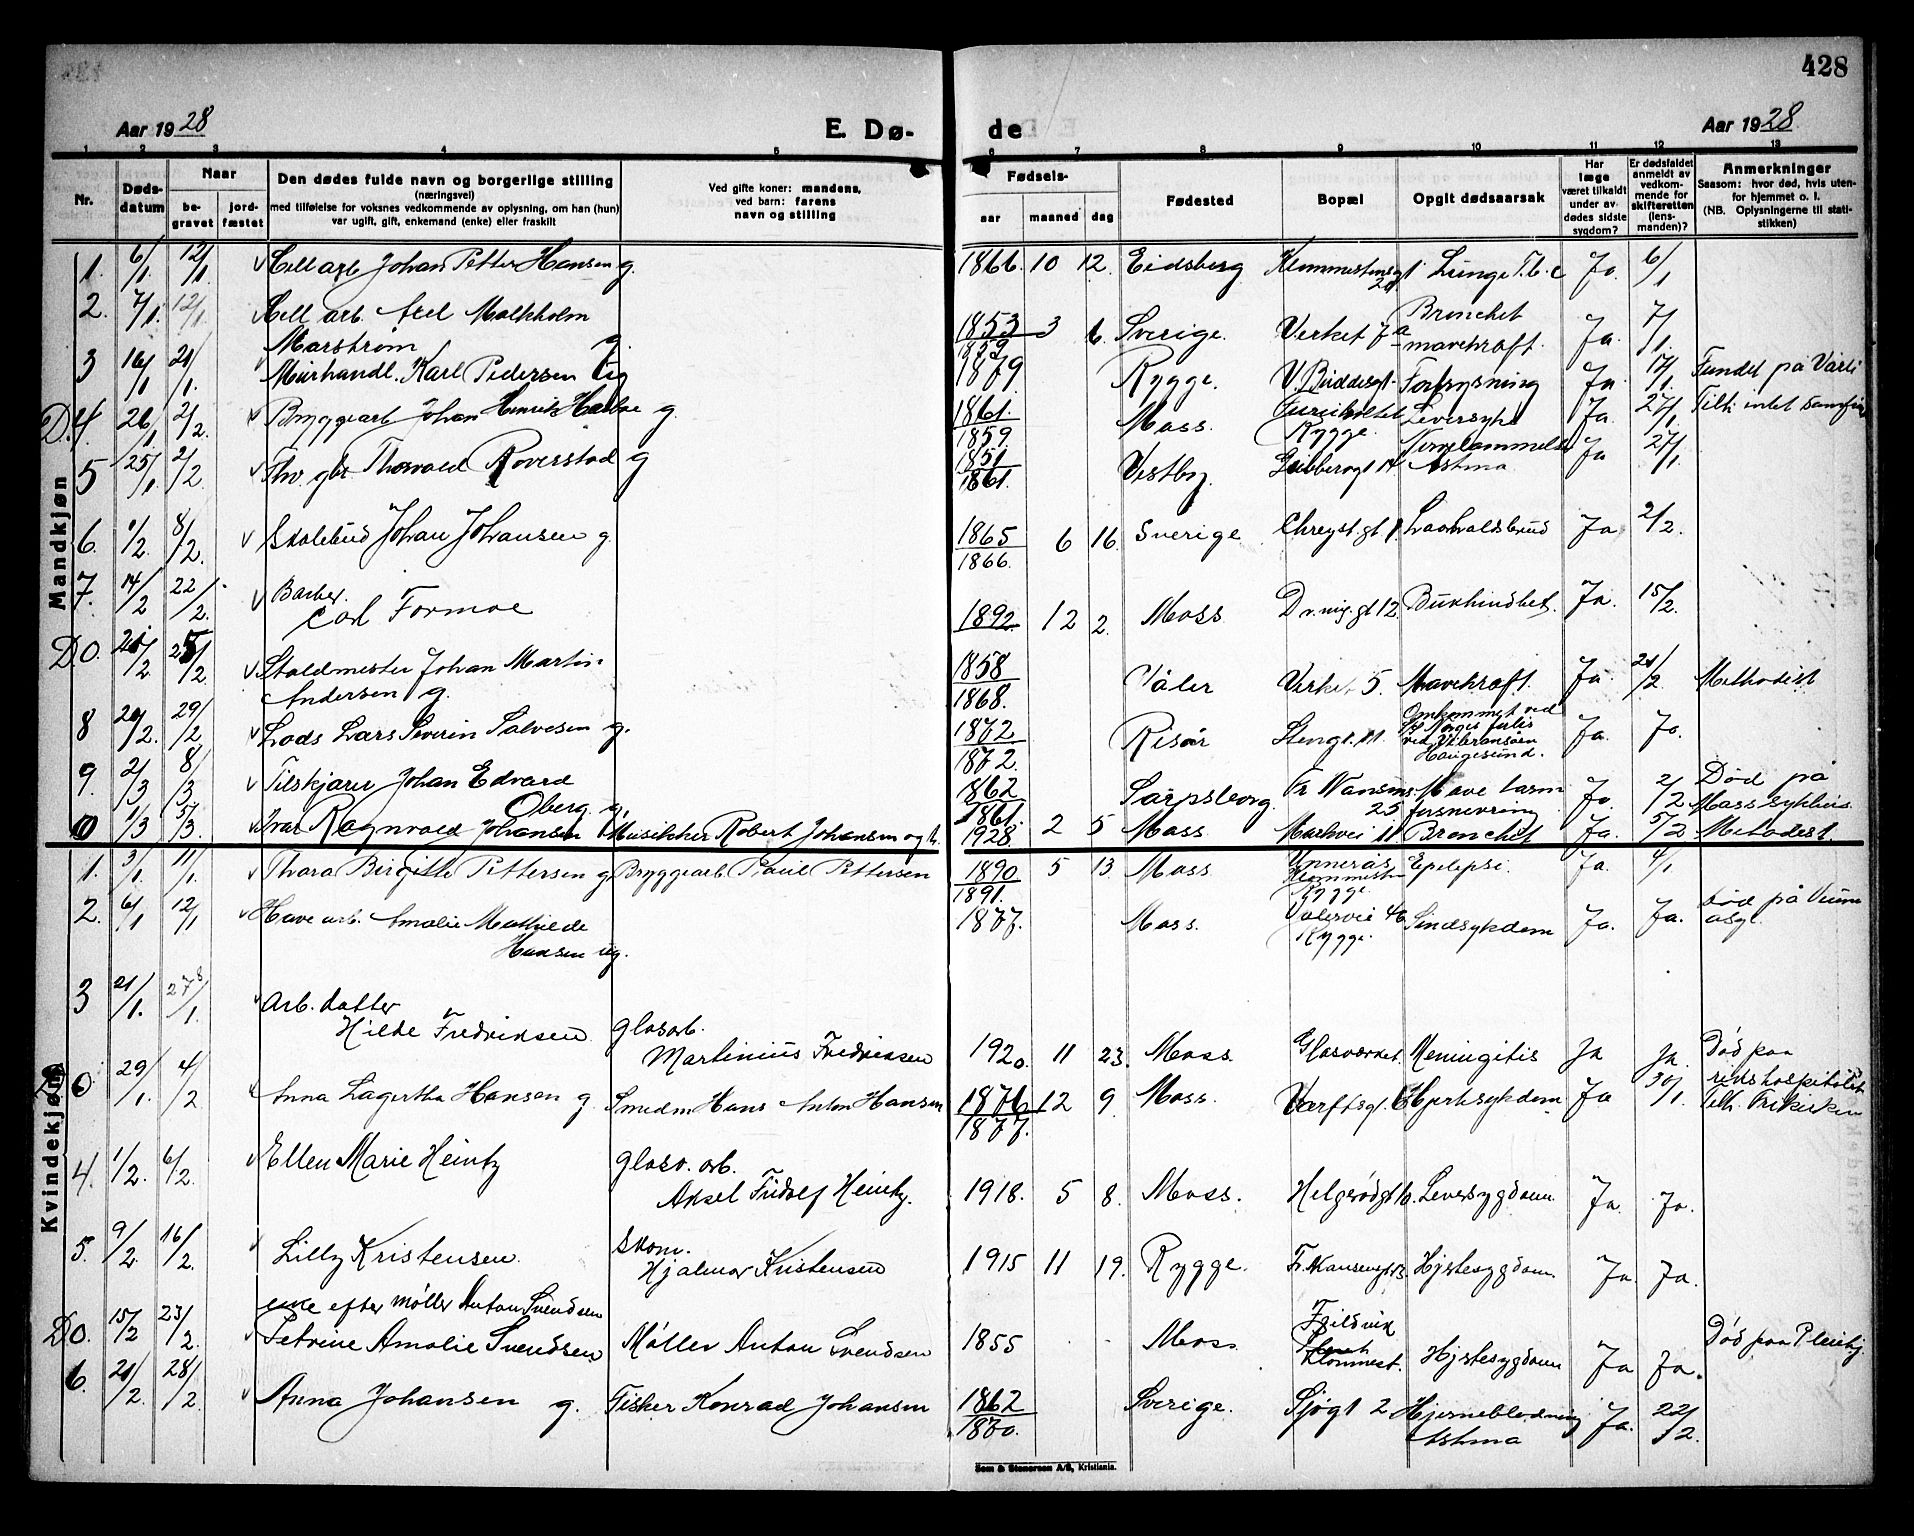 428
Aar 1928
E. Dø- de
Aar 1928
1 2 3 4 5 6 7 8 9 10 11 12 13
Nr.
Døds-
datum
Naar
be-
gravet
jord-
fæstet
Den dødes fulde navn og borgerlige stilling
(næringsvei)
med tilføielse for voksnes vedkommende av oplysning, om han (hun)
var ugift, gift, enkemand (enke) eller fraskilt
Ved gifte koner: mandens,
ved barn: farens
navn og stilling
Fødsels-
aar maaned dag
Fødested
Bopæl
Opgit dødsaarsak
Har
læge
været tilkaldt
under av-
dødes sidste
sygdom?
Er dødsfaldet
anmeldt av
vedkom-
mende for
skifteretten
(lens-
manden)?
Anmerkninger
Saasom: hvor død, hvis uten-
for hjemmet o. l.
(NB. Oplysningerne til stati-
stikken)
Mandkjøn
1. 6/1 12/1 Cell arb Johan Petter Hansen g. 1866. 10 12. Eidsberg 20 Lunge T.b.c Ja. 6/1
2. 7/1. 12/1. Cell arb. Axel Malkholm
Marstrøm g. 1853 3 6. Sverige. Verket 7a Bronchet Ja. 7/1.
1859 mavekræft.
3 16/1 21/1. Murhandl. Karl Pedersen ug 1879 Rygge. V. Buddesgt. Forfrysning Ja. 17/1. Fundet på Vårli
D. 4. 26/1 2/2. Bryggearb Johan Henrik g. 1861. Moss. Leversyke Ja. 27/1. Tilh. intet samfun
1859. Rygge.
5 25/1. 2/2. Thv gbr Thorvald Roverstad g 1851 Vestby. 14 Astma Ja 27/1.
1861.
6. 1/2. 8/2. Skolebud Johan Johansen g. 1865 6 16. Sverige Chrystgt 1. Ja. 2/2.
1866.
7. 14/2 22/2. Barber.
Carl Formoe 1892. 12 2. Moss Dr.nig.gt 12. Bukhindbet. Ja. 15/2.
D. 0. 21/2 25/2. Staldmester Johan Martin
Andersen g. 1858 Våler Verket 5. Mavekræft. Ja. 21/2 Methodist
1868.
8 20/2. 29/2 Lods Lars Severin Salvesen g. 1872 Risør Stengt. 11. Omkommet ved Ja. Ja.
1872. Norges forlis
ved Utsira
Haugesund.
9. 2/3 8/3 Tilskjærer Johan Edvard
Øberg. g. 1862 Sarpsborg. Fr Nansens Mave tarm Ja. 2/2 Død på
1861. 25 forsnevring Moss sykhus.
10 1/3 5/3. Ivar Ragnvald Johansen Musikker Robert Johansen og h. 1928. 2 5 Moss Markvei 11. Bronchet Ja. 5/2 Metodist.
Kvindekjøn
1. 3/1. 11/1. Thora Birgitte Pettersen g Bryggearb. Paul Pettersen 1890 5 13. Moss Epelepsi. Ja. 4/1
1891. Rygge
2. 6/1 12/1 Have arb. Amalie Mathilde
Hansen ug. 1877. Moss. Vålervei 46 Sindsykdom Ja. Ja. Død på Veum
Rygge. asyl.
3 21/1. 27/1. Arb. datter
Hilde Fredriksen glasarb.
Martinius Fredriksen 1920. 11 23. Moss Glasverket. Meningitis Ja Ja. Død paa
rikshospitalet
D. 0. 29/1. 4/2 Anna Lagertha Hansen g. Smedm Hans Anton Hansen 1876 12 9. Moss. Værftsgt. 6 Hjertesykdom Ja 30/1. Tilh. Frikirken
1877.
4. 1/2. 6/2. Ellen Marie Heintz glasv. arb.
Aksel Fridolf Heintz. 1918. 5 8. Moss. Helgerødgt 10. Leversygdom. Ja. Ja.
5. 9/2. 16/2. Lilly Kristensen. Skom.
Hjalmar Kristensen 1915 11 19. Rygge. Hjertesygdom Ja. Ja.
enke efter møller Anton Svendsen
D. 0. 15/2 23/2. Petrine Amalie Svendsen Møller Anton Svendsen 1855 Moss. Fuldvik Hjertesygdom Ja Ja. Død paa Pleiehj.
6. 21/2. 28/2. Anna Johansen g. Fisker Konrad Johansen 1862 Sverige. Sjøgt 2 Hjerneblødning Ja. 22/2.
1870. Astma
Sem & Stenersen A/S, Kristiania.